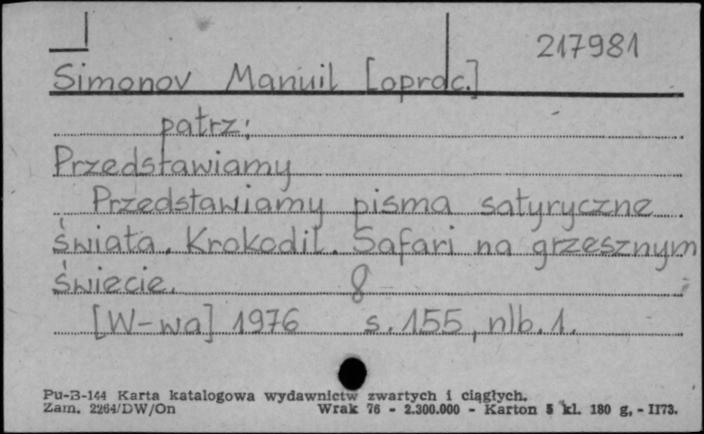 217981
Simonov Manuil [oprac.]
patrz:
Przedstawiamy
Przedstawiamy pisma satyryczne
świata. Krokodil. Safari na grzesznym
świecie. 8
[W-wa] 1976 s. 155, nlb. 1.
Pu-B-144 Karta katalogowa wydawnictw zwartych i ciągłych.
Zam. 2264/DW/On Wrak 76 - 2.300.000 - Karton 5 kl. 180 g. - II73.